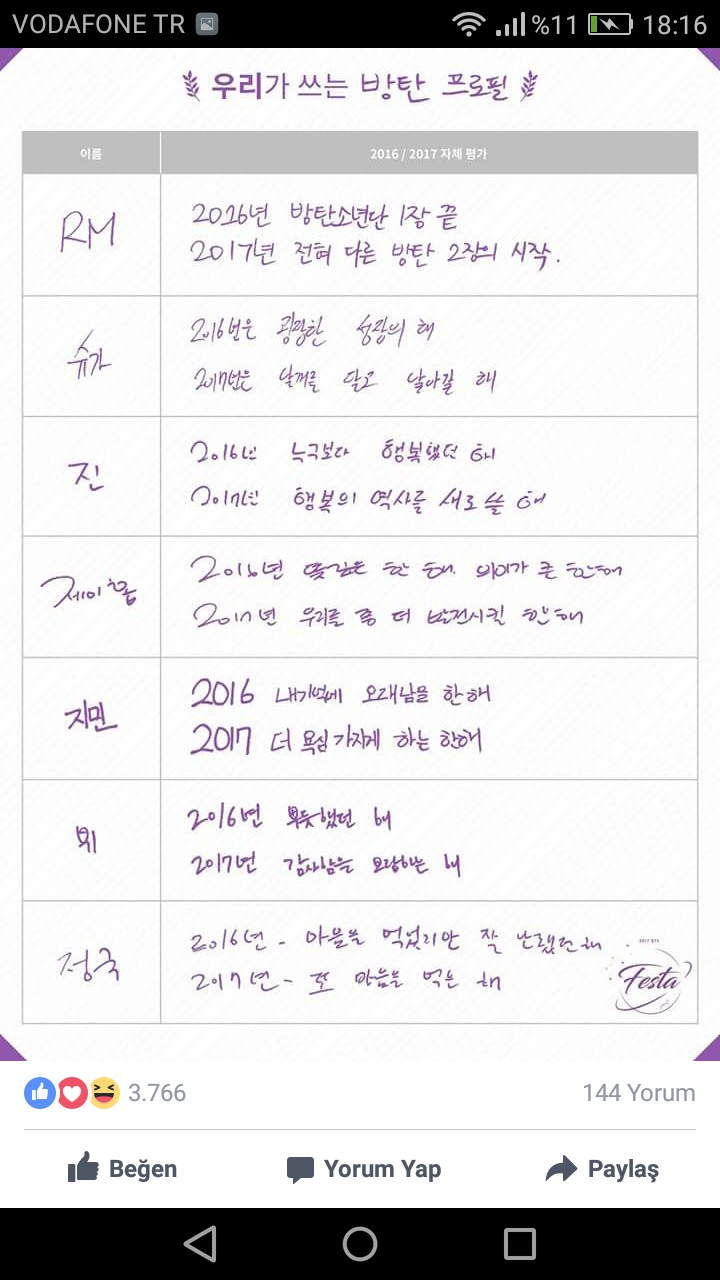 VODAFONE TR %11 18:16
우리가 쓰는 방탄 프로필
이름 2016 / 2017 자체 평가
RM
2016년 방탄소년단 1장 끝
2017년 전혀 다른 방탄 2장의 시작.
슈가
2016년은 굉장한 성장의 해
2017년은 날개를 달고 날아갈 해
진
2016년 누구보다 행복했던 해
2017년 행복의 역사를 새로 쓸 해
제이홉
2016년 뜻깊은 한 해. 의미가 큰 한해
2017년 우리를 좀 더 발전시킬 한해
지민
2016 내기억에 오래남을 한해
2017 더 욕심 가지게 하는 한해
뷔
2016년 뿌듯했던 해
2017년 감사함을 보답하는 해
정국
2016년 - 마음을 먹었지만 잘 안됐던 해
2017년 - 또 마음을 먹은 해
2017 BTS
Festa
3.766 144 Yorum
Beğen Yorum Yap Paylaş